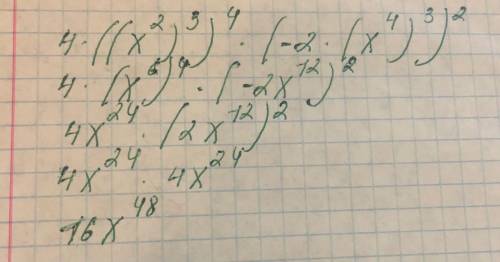 4 · ((x²)³)⁴ · (-2 · (x⁴)³)²
4 · (x⁶)⁴ · (-2x¹²)²
4x²⁴ · (2x¹²)²
4x²⁴ · 4x²⁴
16x⁴⁸